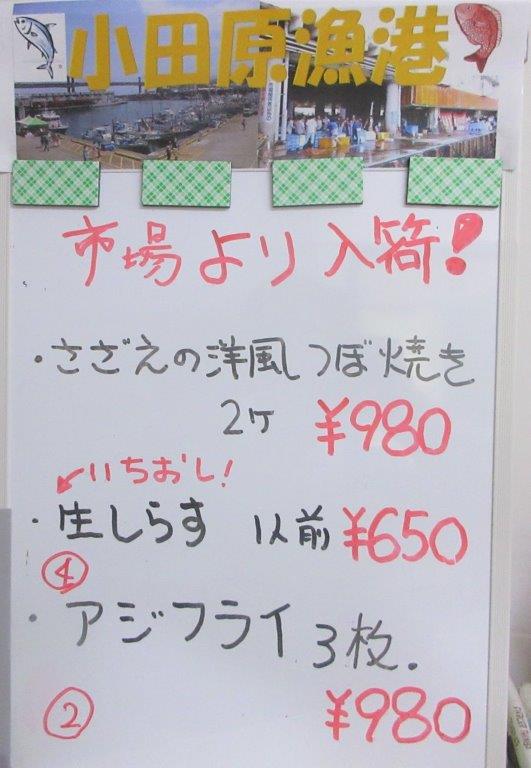 小田原漁港
市場より入荷!
・さざえの洋風つぼ焼き
2ヶ ¥980
いちおし!
・生しらす 1人前 ¥650
④
・アジフライ 3枚.
② ¥980